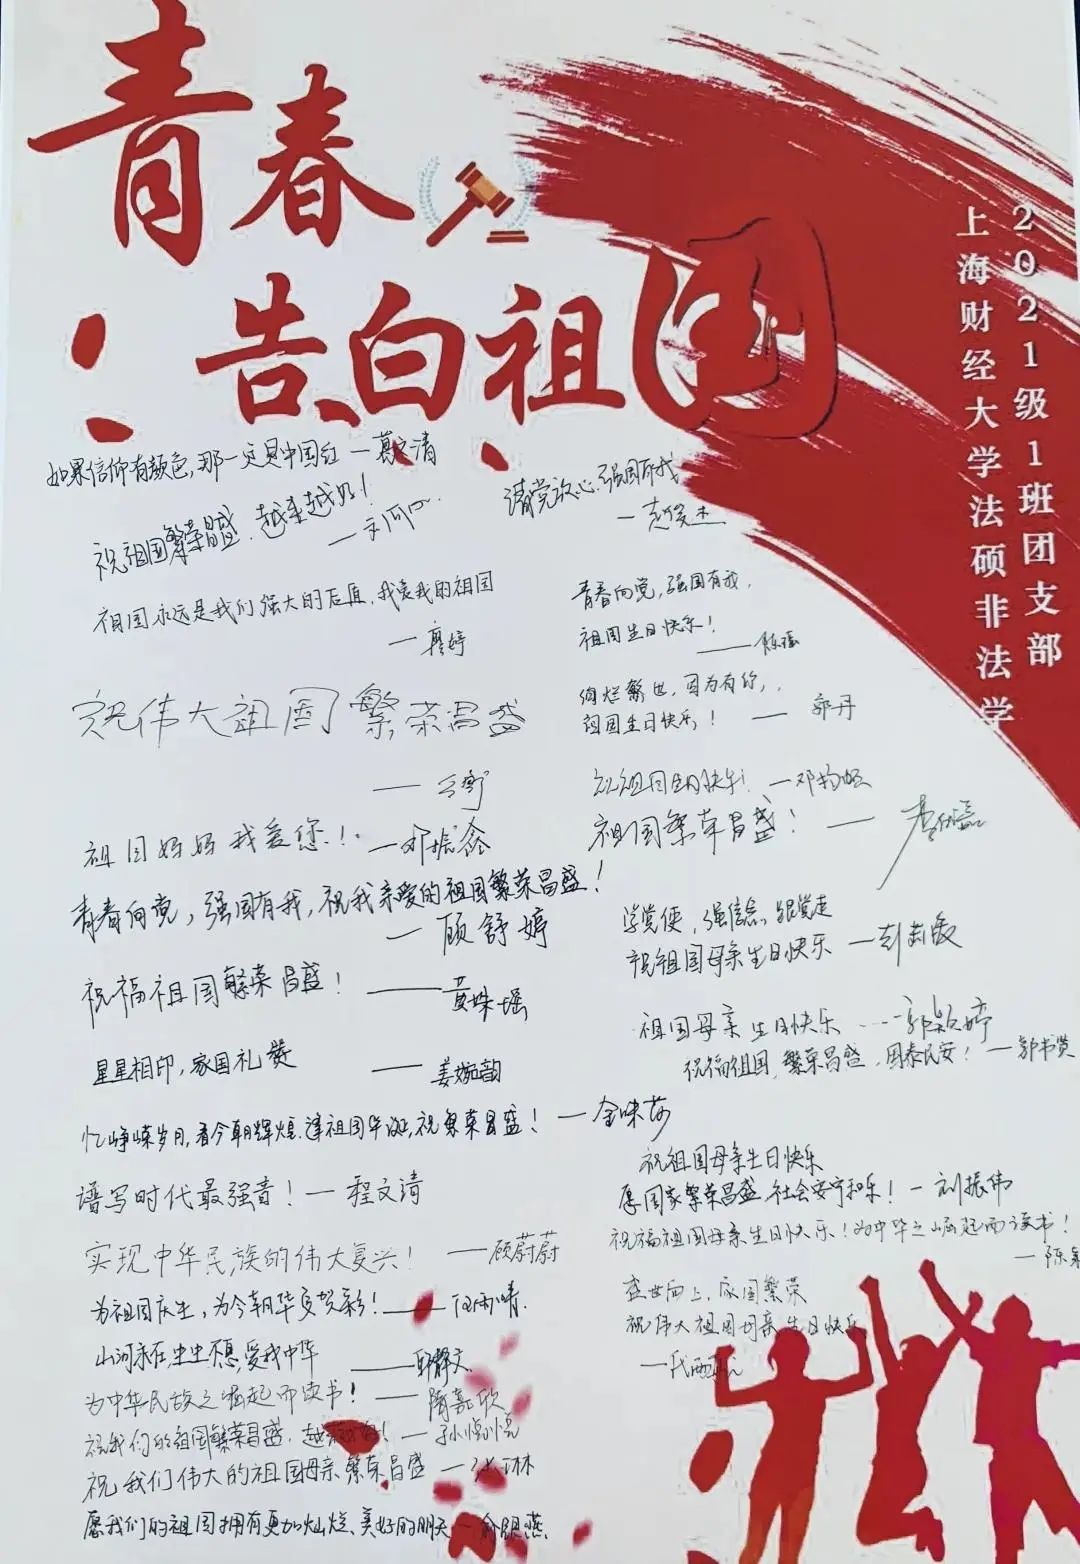 青春
告白祖国
2021级1班团支部
上海财经大学法硕非法学
如果信仰有颜色,那一定是中国红 —葛文清
祝祖国繁荣昌盛,越来越好!
祖国永远是我们强大的后盾,我爱我的祖国
—廖婷
祝伟大祖国繁荣昌盛
祖国妈妈我爱您!
青春向党,强国有我,祝我亲爱的祖国繁荣昌盛!
—顾舒婷
祝福祖国繁荣昌盛!
——黄姝瑶
星星相印,家国礼赞 ——姜婉韵
忆峥嵘岁月,看今朝辉煌,逢祖国华诞,祝繁荣昌盛! —金咏莎
谱写时代最强音! —程文清
实现中华民族的伟大复兴! ——顾蔚蔚
为祖国庆生,为今朝华夏贺彩!
山河永在生生不息,爱我中华
为中华民族之崛起而读书! ——隋嘉欣
祝我们的祖国繁荣昌盛,越
祝我们伟大的祖国母亲繁荣昌盛
愿我们的祖国拥有更加灿烂、美好的明天
请党放心,强国有我
—袁俊杰
青春向党,强国有我,
祖国生日快乐!
——陈瑶
绚烂繁世,因为有你,
祖国生日快乐! —郭丹
祝祖国生日快乐!
祖国繁荣昌盛!
学党史,强信念,跟党走
祝祖国母亲生日快乐
祖国母亲生日快乐 ----郭颖婷
祝福祖国,繁荣昌盛,国泰民安! —郭书贤
祝祖国母亲生日快乐
愿国家繁荣昌盛,社会安宁和乐! —刘振伟
祝福祖国母亲生日快乐!为中华之崛起而读书!
盛世向上,家国繁荣
祝伟大祖国母亲生日快乐